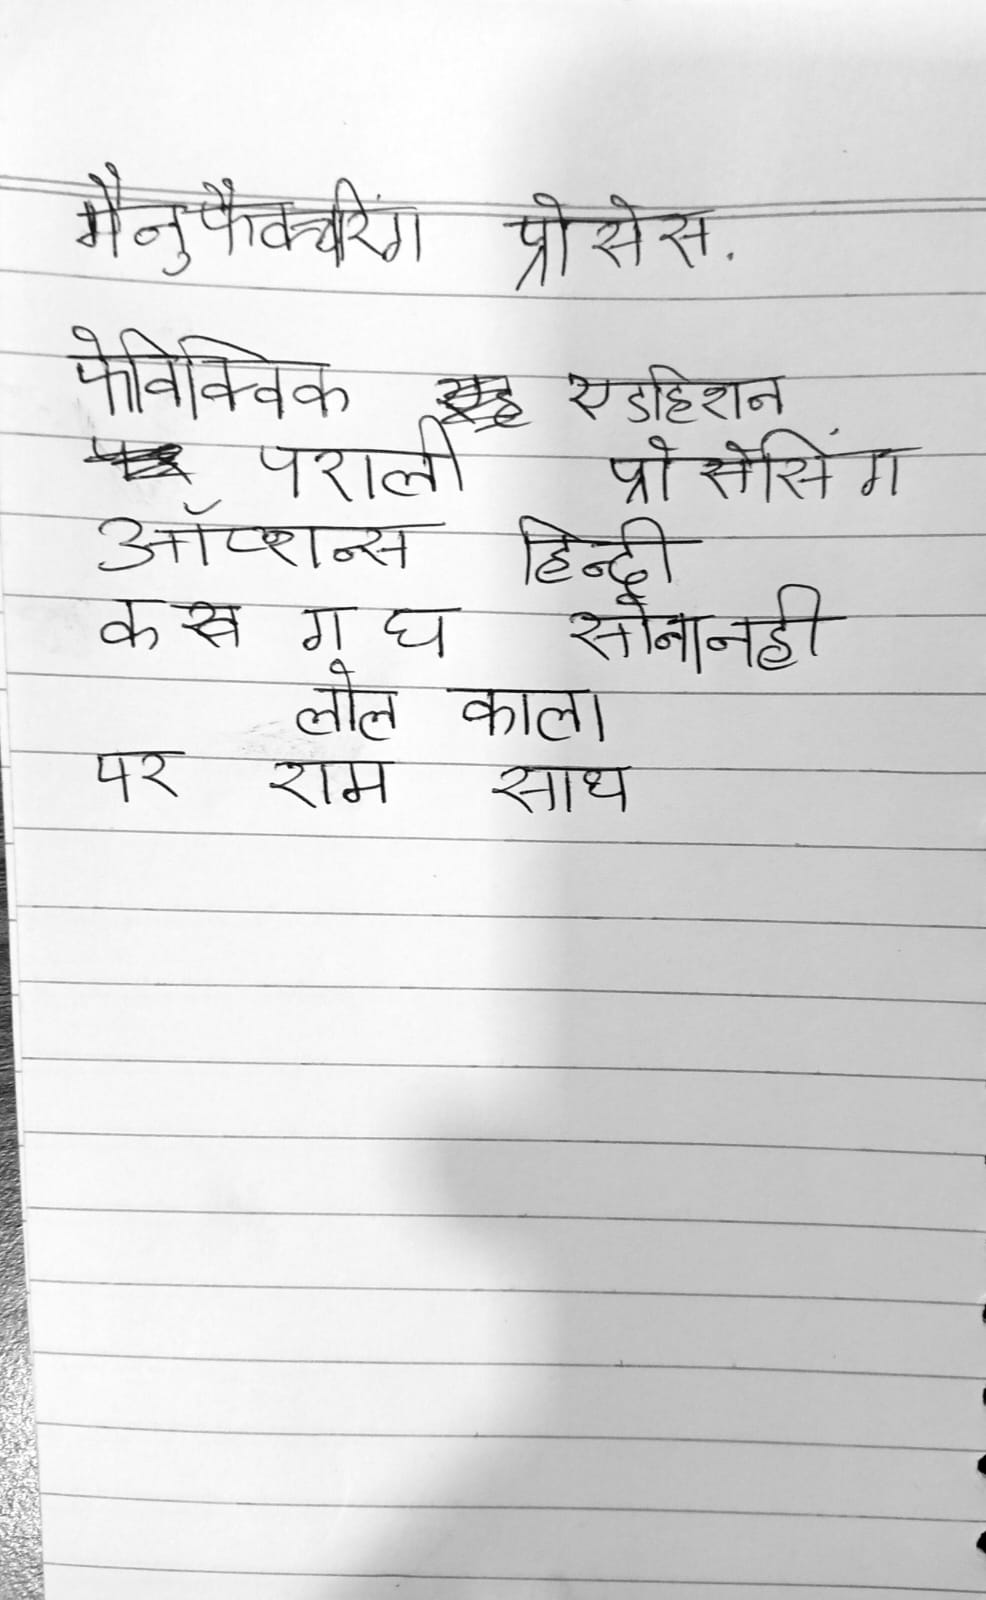 मैनुफैक्चरिंग प्रोसेस.
फेविक्विक एडहिशन
पराली प्रोसेसिंग
ऑप्शन्स हिन्दी
क ख ग घ सोनानही
लोल काला
पर राम साथ